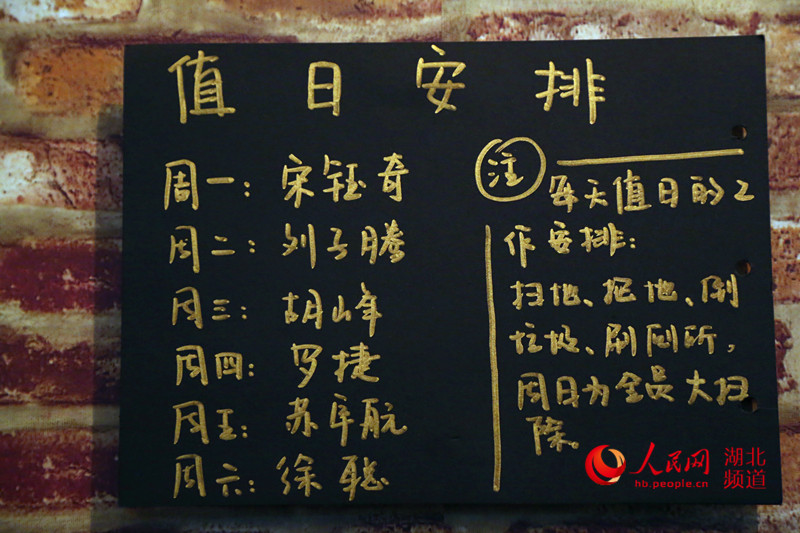 值日安排
周一：宋钰奇
周二：刘子腾
周三：胡峰
周四：罗捷
周五：苏年航
周六：徐聪
注
每天值日的工
作安排：
扫地、拖地、倒
垃圾、刷厕所，
周日为全员大扫
除。
人民网
hb.people.cn
湖北
频道